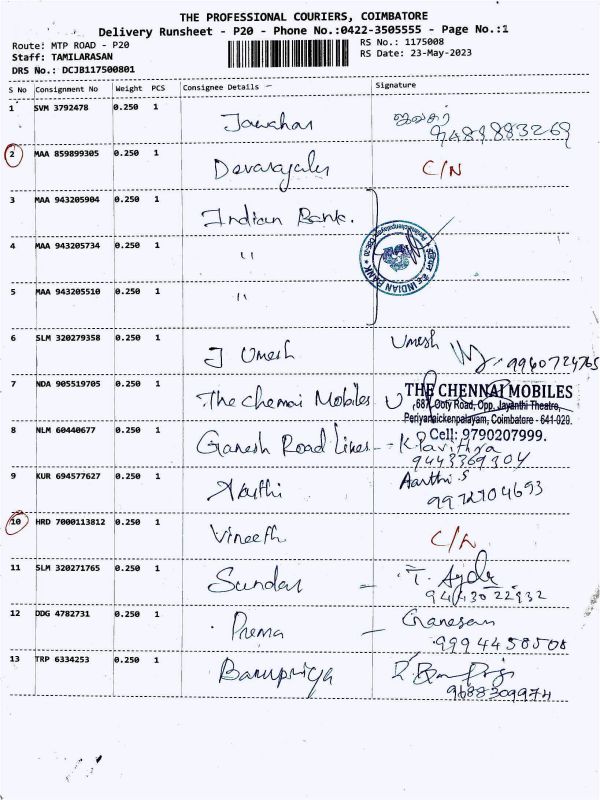 THE PROFESSIONAL COURIERS, COIMBATORE
Delivery Runsheet - P20 - Phone No.:0422-3505555 - Page No.:1
Route: MTP ROAD - P20
RS No.: 1175008
Staff: TAMILARASAN
RS Date: 23-May-2023
DRS No.: DCJB117500801
S No Consignment No Weight PCS Consignee Details - Signature
1 SVM 3792478 0.250 1 Jawahar ஜவகர்
9489883269
2 MAA 859899305 0.250 1 Devarajalu C/N
3 MAA 943205904 0.250 1 Indian Bank.
4 MAA 943205734 0.250 1 "
INDIAN BANK
5 MAA 943205510 0.250 1 "
6 SLM 320279358 0.250 1 J Umesh Umesh
9960724765
7 NDA 905519705 0.250 1 The chennai Mobiles
THE CHENNAI MOBILES
687 Ooty Road, Opp. Jayanthi Theatre,
Periyanaickenpalayam, Coimbatore - 641-020.
Cell: 9790207999.
8 NLM 60440677 0.250 1 Ganesh Road Lines - K. Pavithra
9443369304
9 KUR 694577627 0.250 1 Aarthi Aarthi.S
9972704693
10 HRD 7000113812 0.250 1 Vineeth C/N
11 SLM 320271765 0.250 1 Sundar - T.
9443022932
12 DDG 4782731 0.250 1 Prema - Ganesan
9994458508
13 TRP 6334253 0.250 1 Banupriya
9688309974